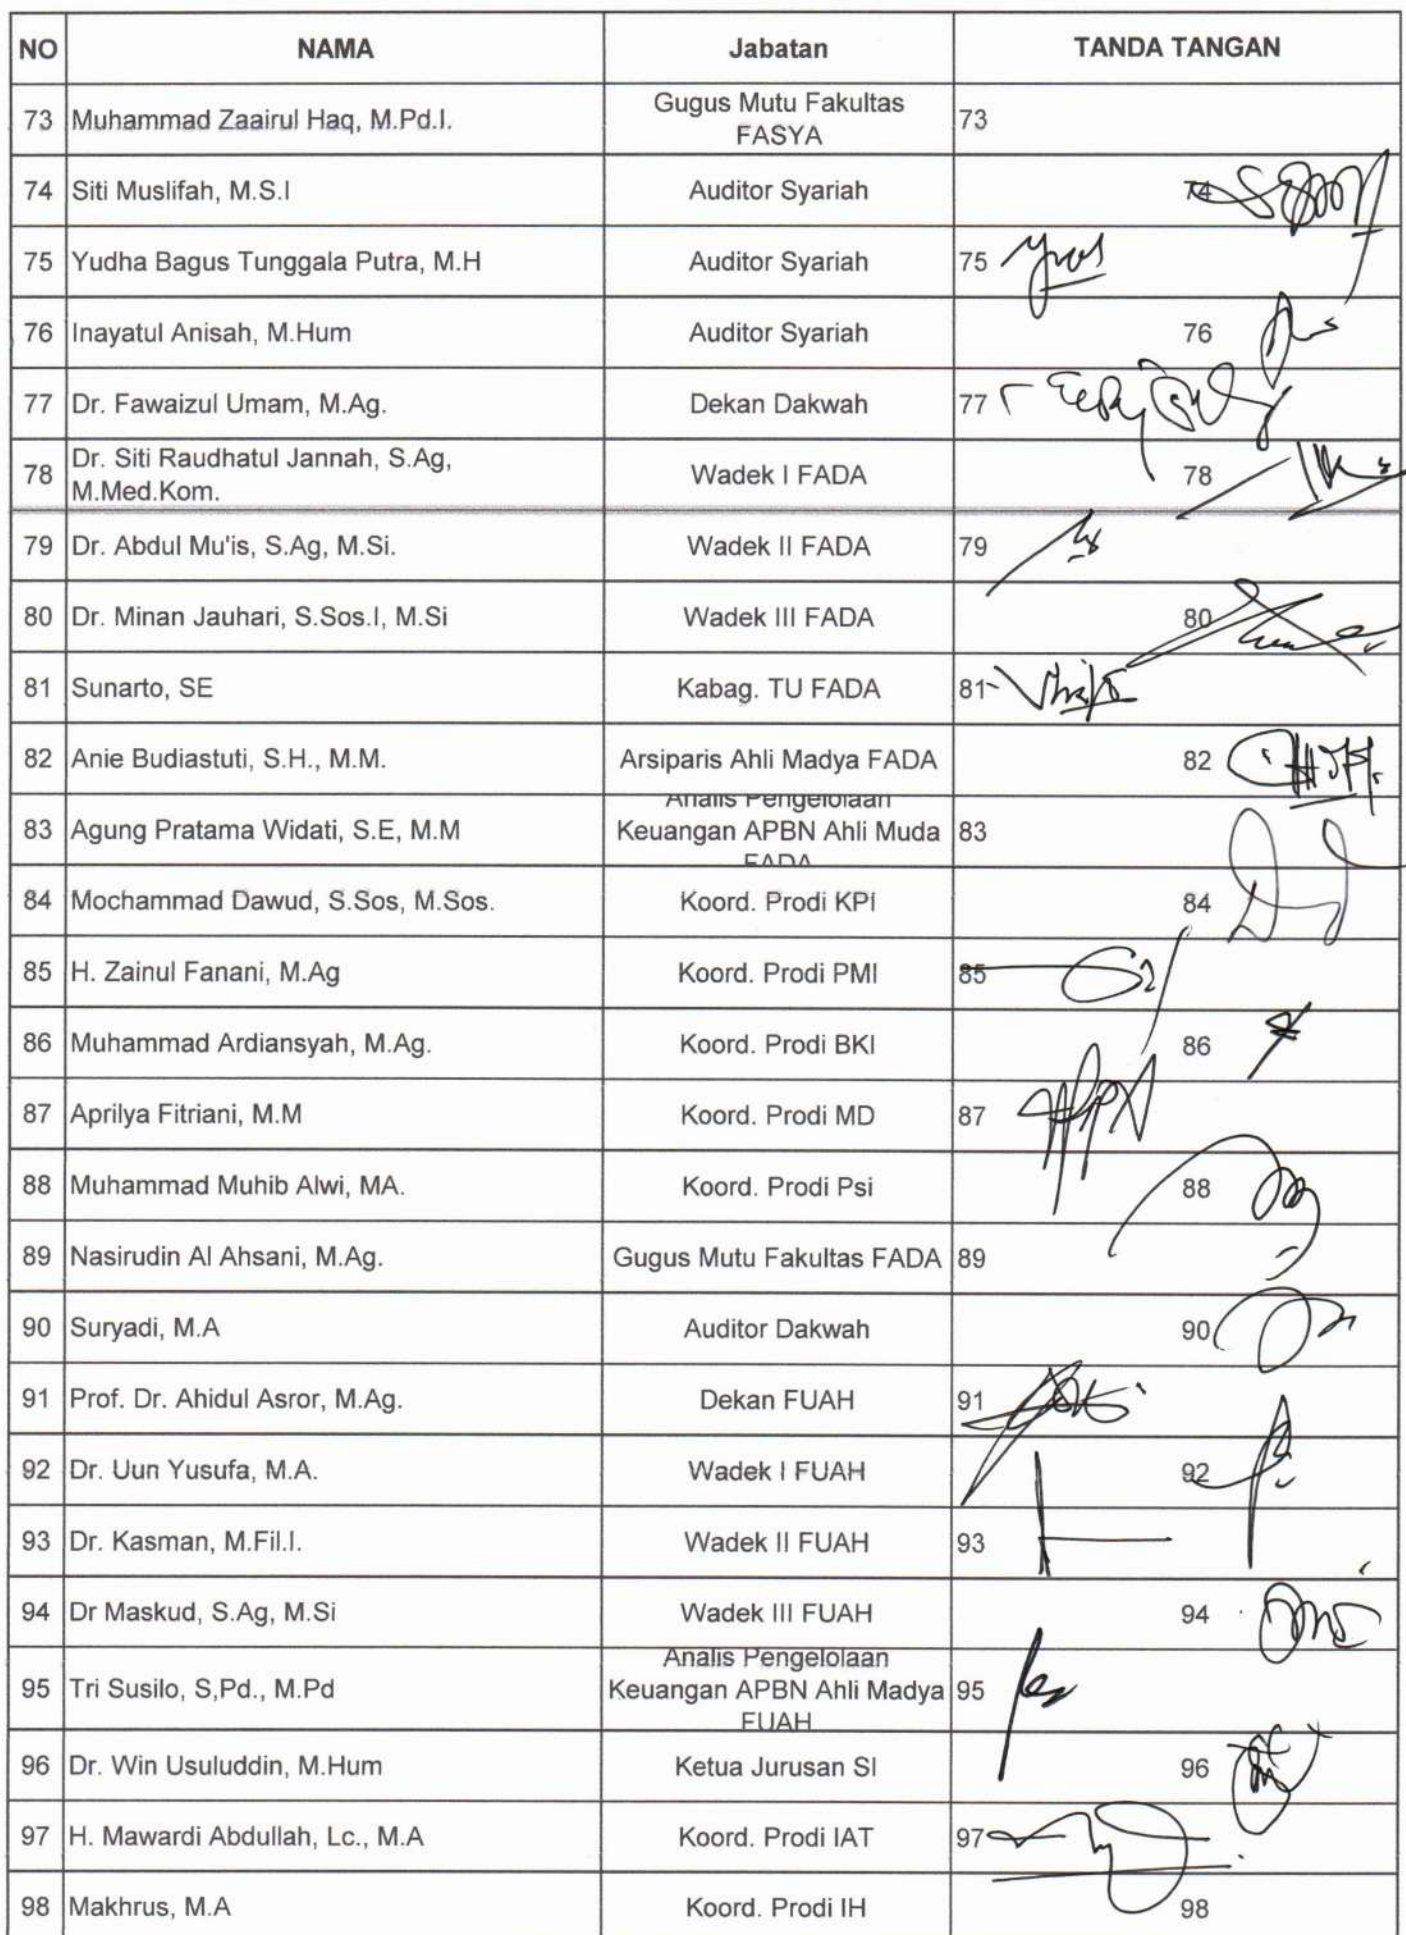 NO NAMA Jabatan TANDA TANGAN
73 Muhammad Zaairul Haq, M.Pd.I. Gugus Mutu Fakultas FASYA 73
74 Siti Muslifah, M.S.I Auditor Syariah 74
75 Yudha Bagus Tunggala Putra, M.H Auditor Syariah 75
76 Inayatul Anisah, M.Hum Auditor Syariah 76
77 Dr. Fawaizul Umam, M.Ag. Dekan Dakwah 77
78 Dr. Siti Raudhatul Jannah, S.Ag, M.Med.Kom. Wadek I FADA 78
79 Dr. Abdul Mu'is, S.Ag, M.Si. Wadek II FADA 79
80 Dr. Minan Jauhari, S.Sos.I, M.Si Wadek III FADA 80
81 Sunarto, SE Kabag. TU FADA 81
82 Anie Budiastuti, S.H., M.M. Arsiparis Ahli Madya FADA 82
83 Agung Pratama Widati, S.E, M.M Analis Pengelolaan Keuangan APBN Ahli Muda FADA 83
84 Mochammad Dawud, S.Sos, M.Sos. Koord. Prodi KPI 84
85 H. Zainul Fanani, M.Ag Koord. Prodi PMI 85
86 Muhammad Ardiansyah, M.Ag. Koord. Prodi BKI 86
87 Aprilya Fitriani, M.M Koord. Prodi MD 87
88 Muhammad Muhib Alwi, MA. Koord. Prodi Psi 88
89 Nasirudin Al Ahsani, M.Ag. Gugus Mutu Fakultas FADA 89
90 Suryadi, M.A Auditor Dakwah 90
91 Prof. Dr. Ahidul Asror, M.Ag. Dekan FUAH 91
92 Dr. Uun Yusufa, M.A. Wadek I FUAH 92
93 Dr. Kasman, M.Fil.I. Wadek II FUAH 93
94 Dr Maskud, S.Ag, M.Si Wadek III FUAH 94
95 Tri Susilo, S,Pd., M.Pd Analis Pengelolaan Keuangan APBN Ahli Madya FUAH 95
96 Dr. Win Usuluddin, M.Hum Ketua Jurusan SI 96
97 H. Mawardi Abdullah, Lc., M.A Koord. Prodi IAT 97
98 Makhrus, M.A Koord. Prodi IH 98